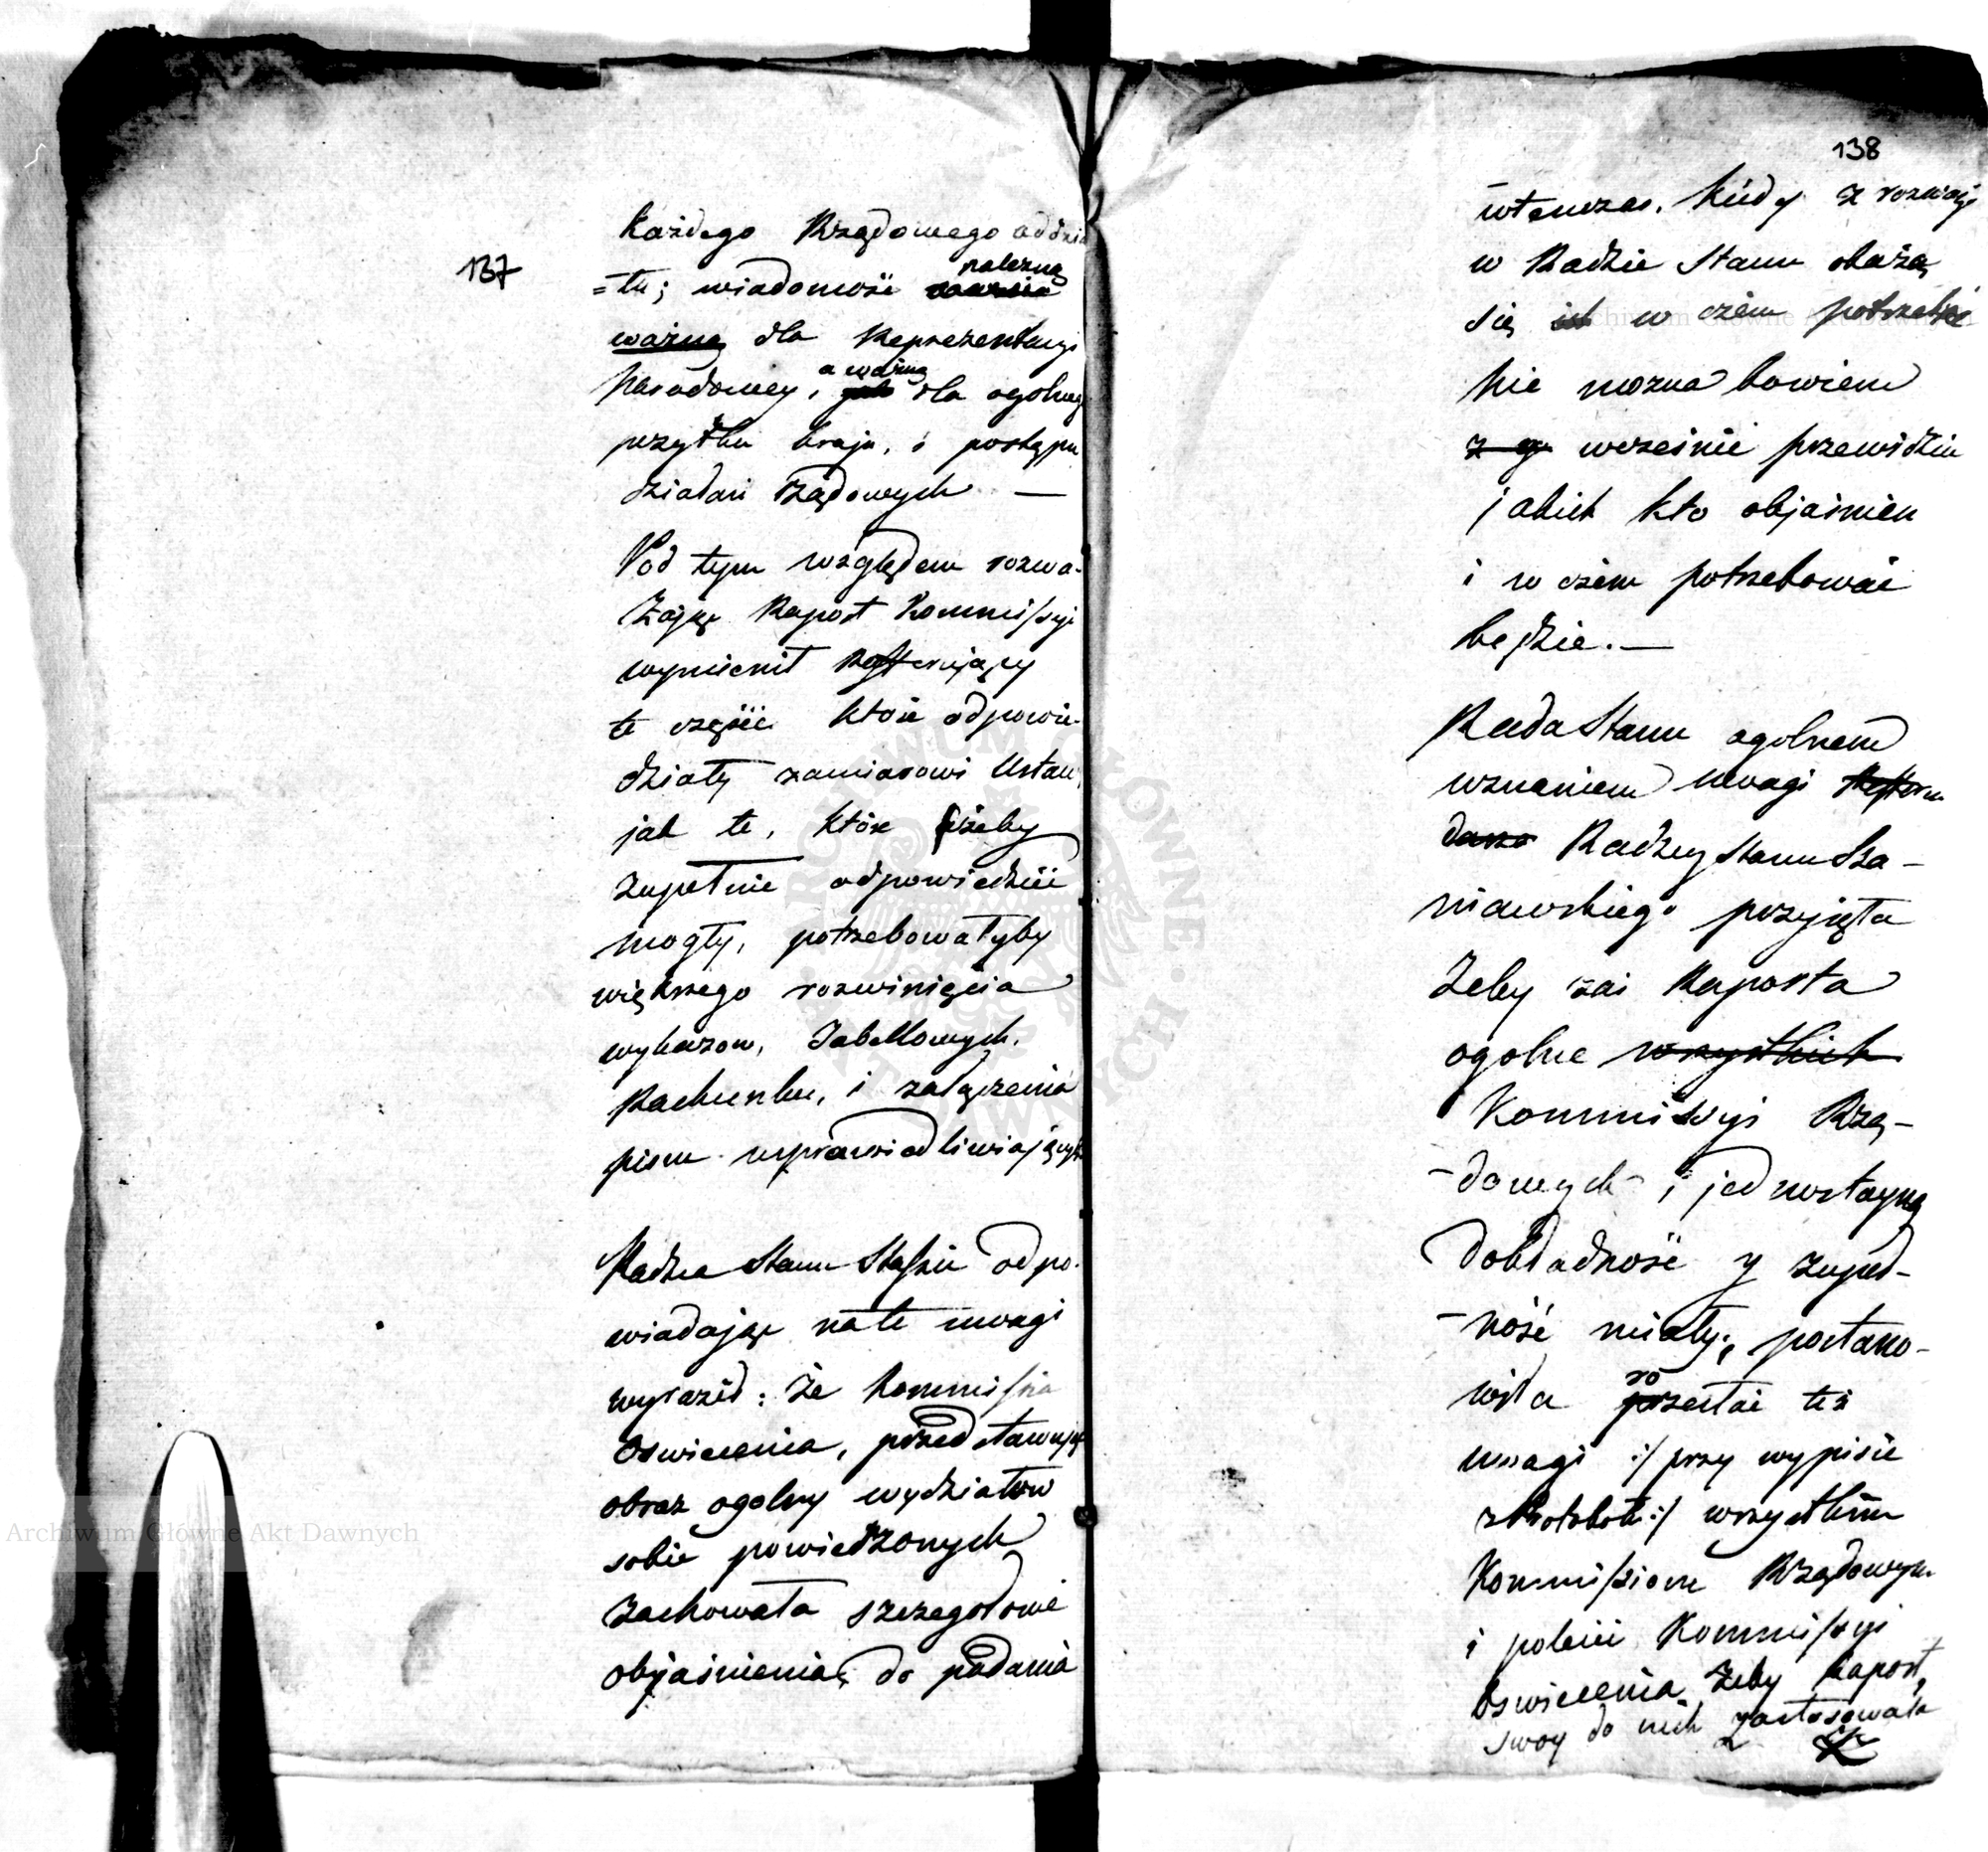 137
każdego Rządowego oddzia
=łu; wiadomość należną
ważną dla Reprezentacyi
Narodowey, a ważną dla ogolnego
pożytku kraju, i postępu
działań rządowych —
Pod tym względem rozwa-
żając Raport Kommissyi
wymienił Refferujący
te części które odpowie-
działy zamiarowi Ustaw,
jak te, które żeby
zupełnie odpowiedzieć
mogły, potrzebowałyby
większego rozwinięcia
wykazow, Tabellowych,
Rachunku, i załączenia
pism usprawiedliwiających
Radzca Stanu Staszic odpo-
wiadając na te uwagi
wyraził: że Kommissia
Oswiecenia, przedstawując
obraz ogolny wydziałow
sobie powierzonych
zachowała szczegołowe
objaśnienia, do podania
138
wtenczas, kiedy z rozwagi
w Radzie Stanu okażą
się w czém potrzebne
Nie można bowiem
z gó wcześnie przewidzieć
jakich kto objaśnień
i w czém potrzebować
będzie.—
Rada Stanu ogolném
uznaniem uwagi Refferen
darza Radzcy Stanu Sza-
niawskiego przyjęła
Żeby zaś Raporta
ogolne wszystkich
Kommissyi Rzą-
-dowych i jednostayną
dokładność y zupeł-
-ność miały; postano-
wiła rozesłać też
uwagi :/ przy wypisie
z Protokołu :/ wszystkim
Kommissiom Rządowym
i polecić Kommissyi
Oswiecenia żeby Raport
swoy do nich zastosowała
Archiwum Główne Akt Dawnych